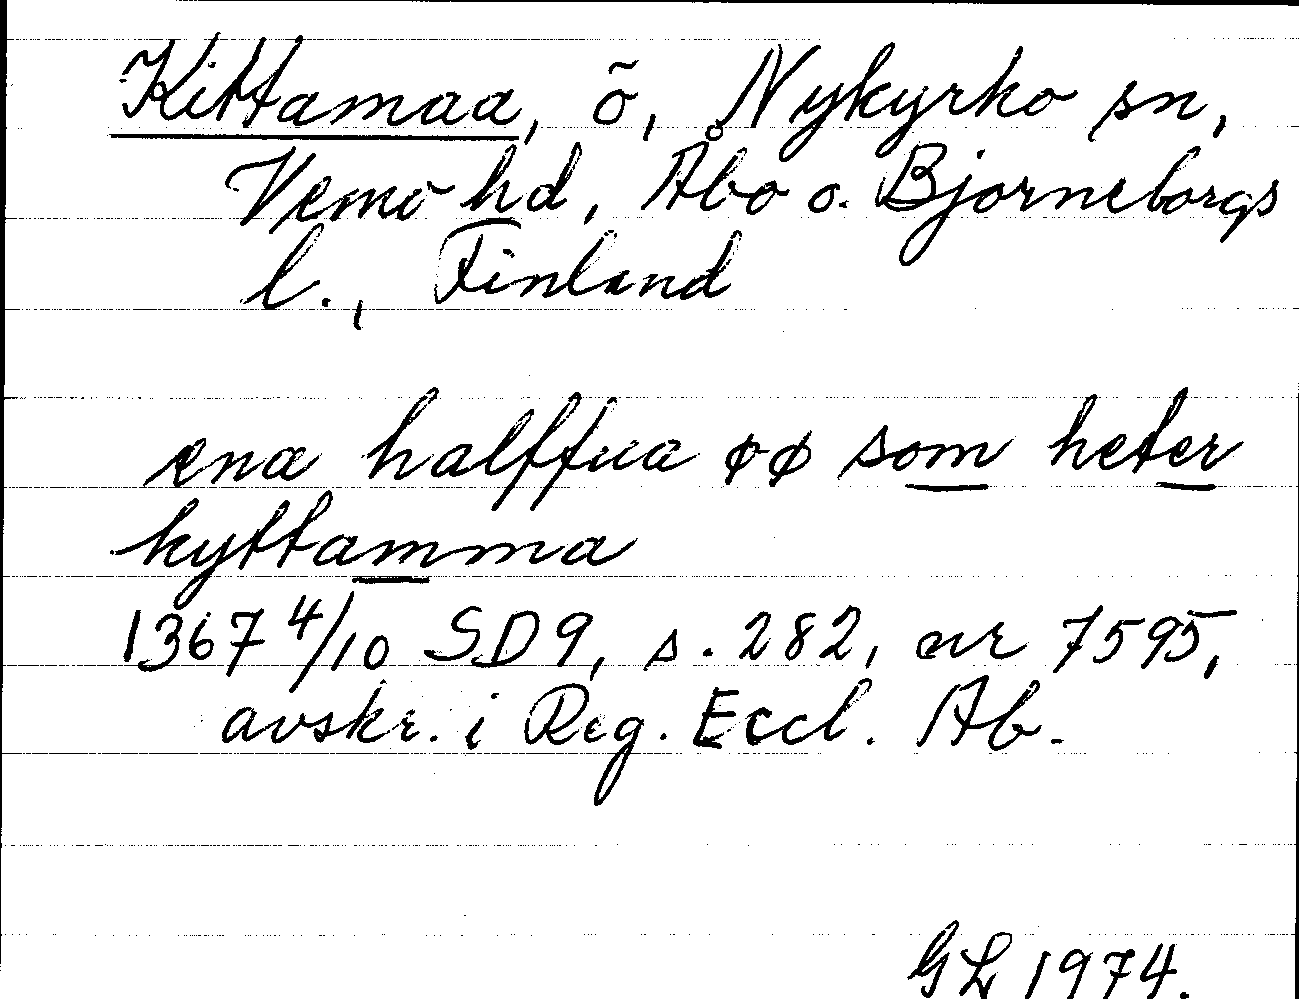 Kittamaa, ö, Nykyrko sn,
Vemo hd, Åbo o. Bjorneborgs
l., Finland
ena halffua øø som heter
kyttamma
1367 4/10 SD9, s. 282, nr 7595,
avskr. i Reg. Eccl. Ab.
GL 1974.